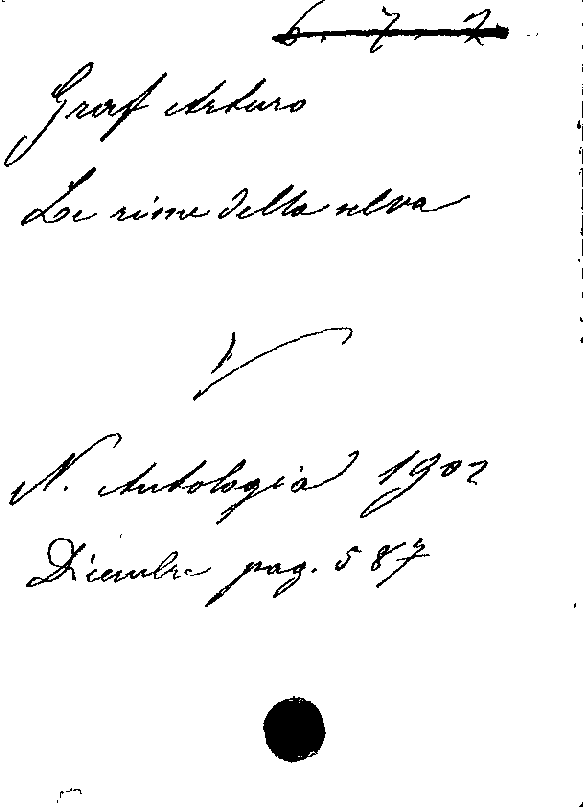 6. 7. 2
Graf Arturo
Le rime della selva
N. Antologia 1902
Dicembre pag. 587